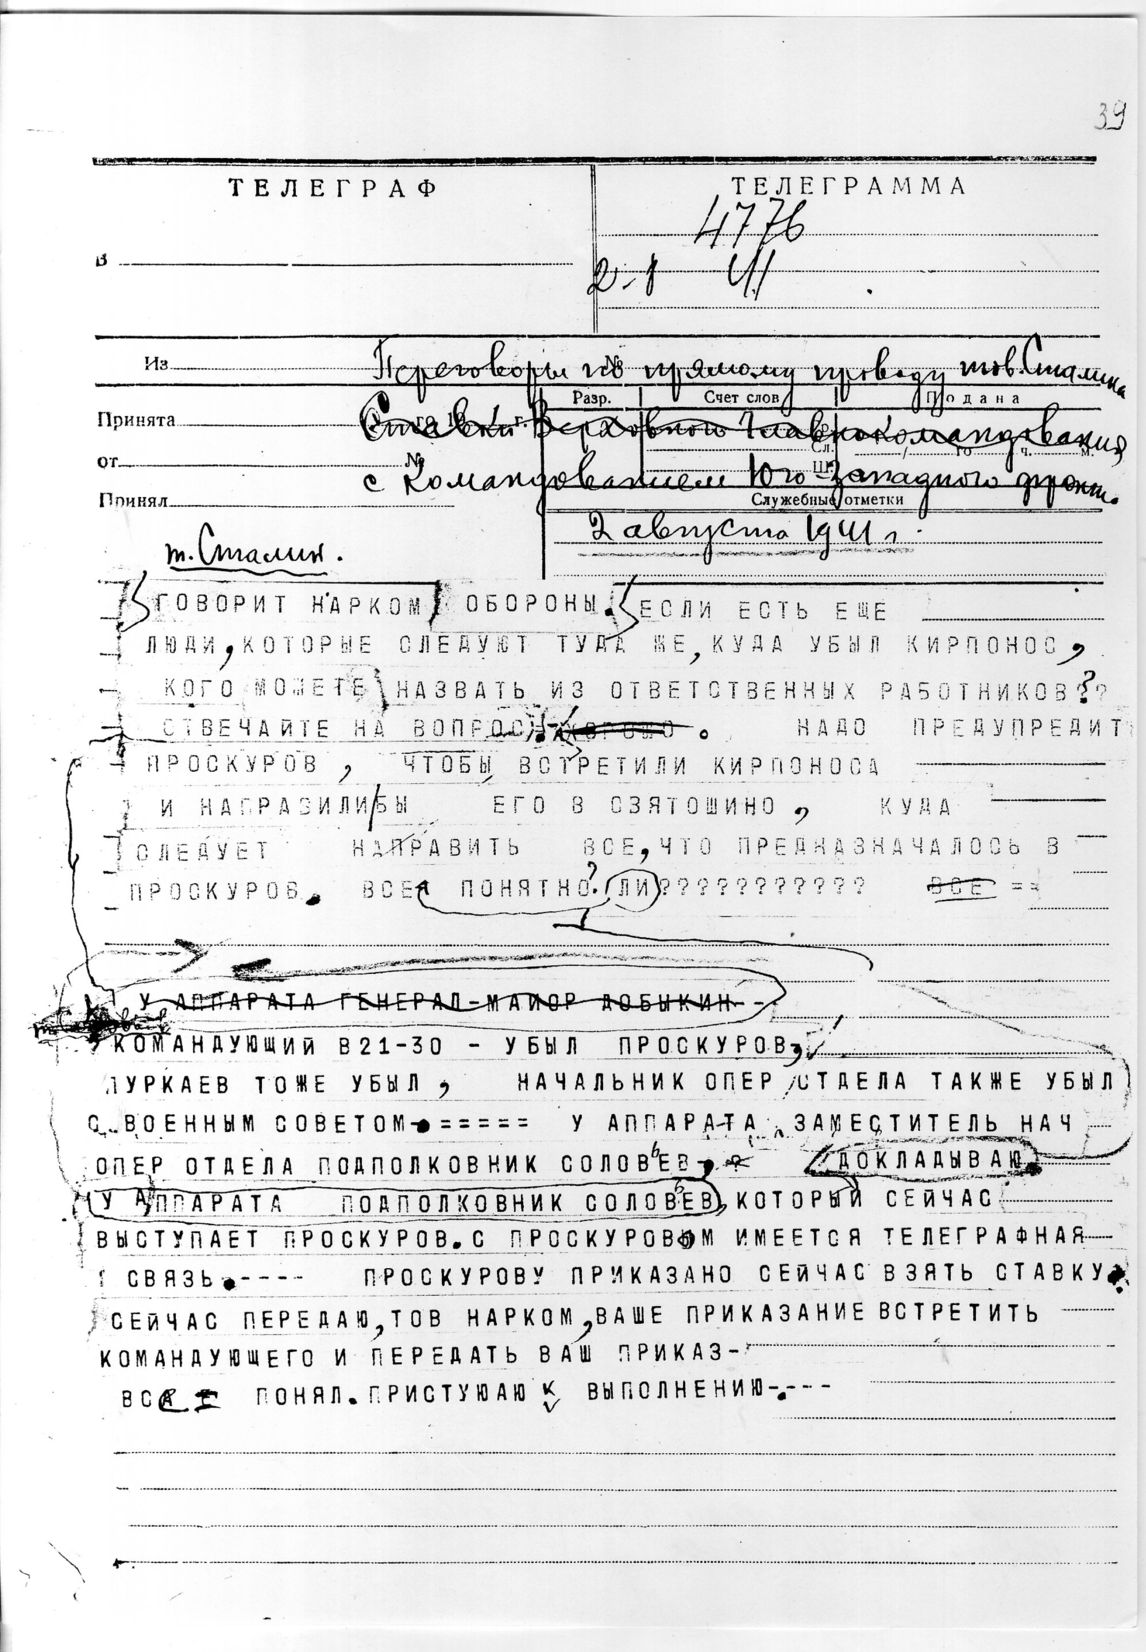 39
ТЕЛЕГРАФ
ТЕЛЕГРАММА
4776
В
2.8 41
Из
№
Переговоры по прямому проводу тов. Сталина
Разр.
Счет слов
Подана
Принята
Ставки Верховного Главнокомандования
от
№
с Командованием Юго-Западного фронт.
Принял
Служебные отметки
2 августа 1941 г.
т. Сталин.
ГОВОРИТ НАРКОМ ОБОРОНЫ. ЕСЛИ ЕСТЬ ЕЩЕ
ЛЮДИ, КОТОРЫЕ СЛЕДУЮТ ТУДА ЖЕ, КУДА УБЫЛ КИРПОНОС,
КОГО МОЖЕТЕ НАЗВАТЬ ИЗ ОТВЕТСТВЕННЫХ РАБОТНИКОВ???
ОТВЕЧАЙТЕ НА ВОПРОС. ХОРОШО. НАДО ПРЕДУПРЕДИТ
ПРОСКУРОВ, ЧТОБЫ ВСТРЕТИЛИ КИРПОНОСА
И НАПРАВИЛИ БЫ ЕГО В СВЯТОШИНО, КУДА
СЛЕДУЕТ НАПРАВИТЬ ВСЕ, ЧТО ПРЕДНАЗНАЧАЛОСЬ В
ПРОСКУРОВ. ВСЕ ПОНЯТНО? ЛИ??????????? ВСЕ ==
У АППАРАТА ГЕНЕРАЛ-МАЙОР ДОБЫКИН--
КОМАНДУЮЩИЙ В21-30 - УБЫЛ ПРОСКУРОВ,
ПУРКАЕВ ТОЖЕ УБЫЛ, НАЧАЛЬНИК ОПЕР ОТДЕЛА ТАКЖЕ УБЫЛ
С ВОЕННЫМ СОВЕТОМ.===== У АППАРАТА ЗАМЕСТИТЕЛЬ НАЧ
ОПЕР ОТДЕЛА ПОДПОЛКОВНИК СОЛОВЬЕВ, ДОКЛАДЫВАЮ
У АППАРАТА ПОДПОЛКОВНИК СОЛОВЬЕВ, КОТОРЫЙ СЕЙЧАС
ВЫСТУПАЕТ ПРОСКУРОВ. С ПРОСКУРОВОМ ИМЕЕТСЯ ТЕЛЕГРАФНАЯ
СВЯЗЬ.---- ПРОСКУРОВУ ПРИКАЗАНО СЕЙЧАС ВЗЯТЬ СТАВКУ.
СЕЙЧАС ПЕРЕДАЮ, ТОВ НАРКОМ, ВАШЕ ПРИКАЗАНИЕ ВСТРЕТИТЬ
КОМАНДУЮЩЕГО И ПЕРЕДАТЬ ВАШ ПРИКАЗ-
ВСЕ ПОНЯЛ. ПРИСТУЮАЮ К ВЫПОЛНЕНИЮ-.---